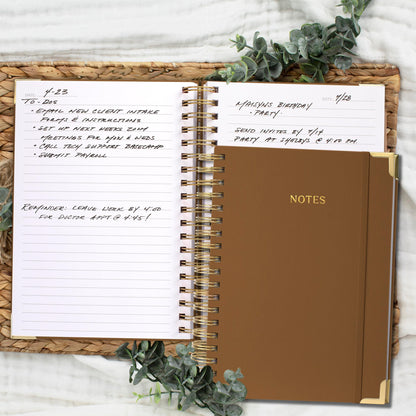 DATE 4-23
TO-DOS
• EMAIL NEW CLIENT INTAKE
FORMS & INSTRUCTIONS
• SET UP NEXT WEEKS ZOOM
MEETINGS FOR MON & WEDS.
• CALL TECH SUPPORT BASECAMP
• SUBMIT PAYROLL
REMINDER: LEAVE WORK BY 4:00
FOR DOCTOR APPT @ 4:45!
DATE 4/28
MAISYNS BIRTHDAY
• PARTY
SEND INVITES BY 7/14
PARTY AT SHELBYS @ 4:00 PM
NOTES